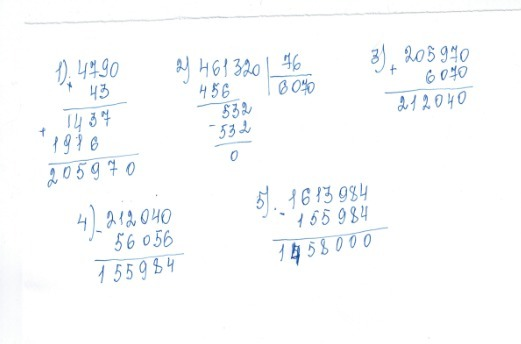 1) 4790
× 43
1437
+ 1916
205970
2) 461320 | 76
456 6070
532
- 532
0
3) 205970
+ 6070
212040
4) 212040
- 56056
155984
5) 1613984
- 155984
1458000